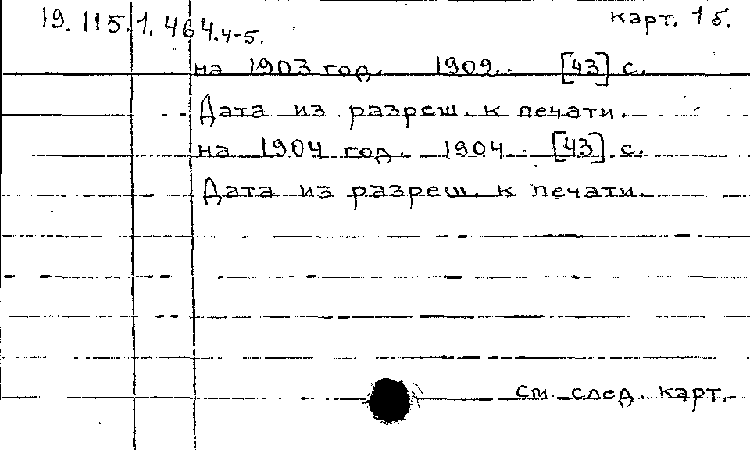 19.115.1.464.4-5. карт. 1б.
на 1903 год. 1902. [43] с.
Дата из разреш. к печати.
на 1904 год. 1904. [43] с.
Дата из разреш. к печати.
см. след. карт.